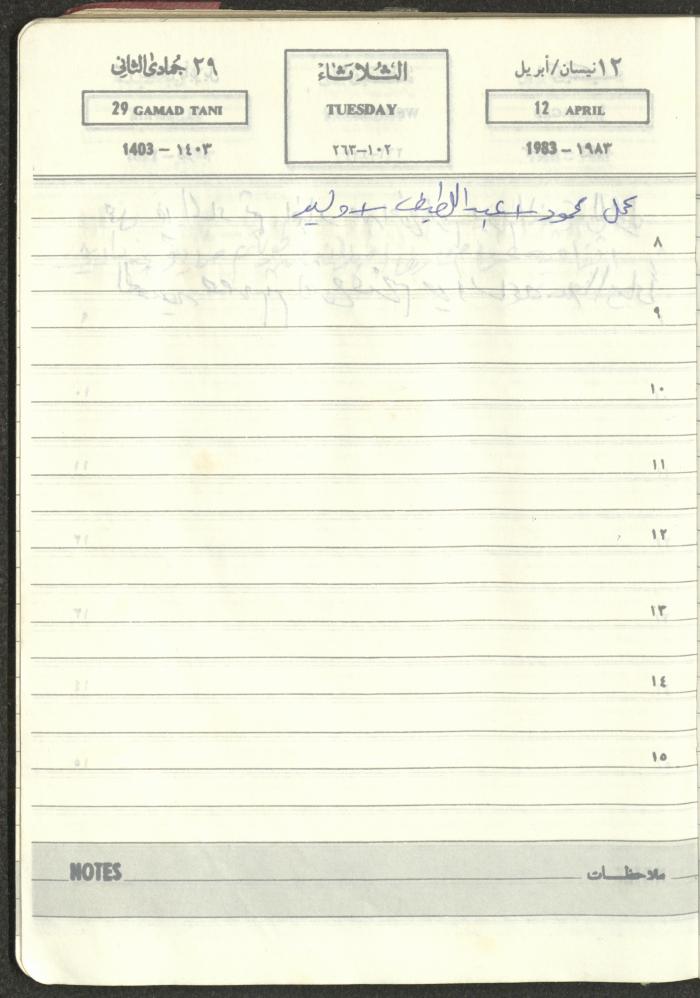 ٢٩ جُمادىٰ الثاني
الثلاثاء
١٢ نيسان/أبريل
29 GAMAD TANI
TUESDAY
12 APRIL
1403 – ١٤٠٣
٢٦٣–١٠٢
1983 – ١٩٨٣
عمل محمود + عبد اللطيف + وليد
٨
٩
١٠
١١
١٢
١٣
١٤
١٥
NOTES
ملاحظات